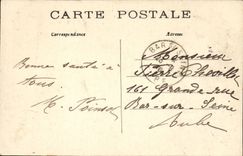 CARTE POSTALE
Correspondance
Adresse
BAR
Bonne santé à
tous
Monsieur
Pierre
161 Grande-rue
Bar-sur-Seine
Aube